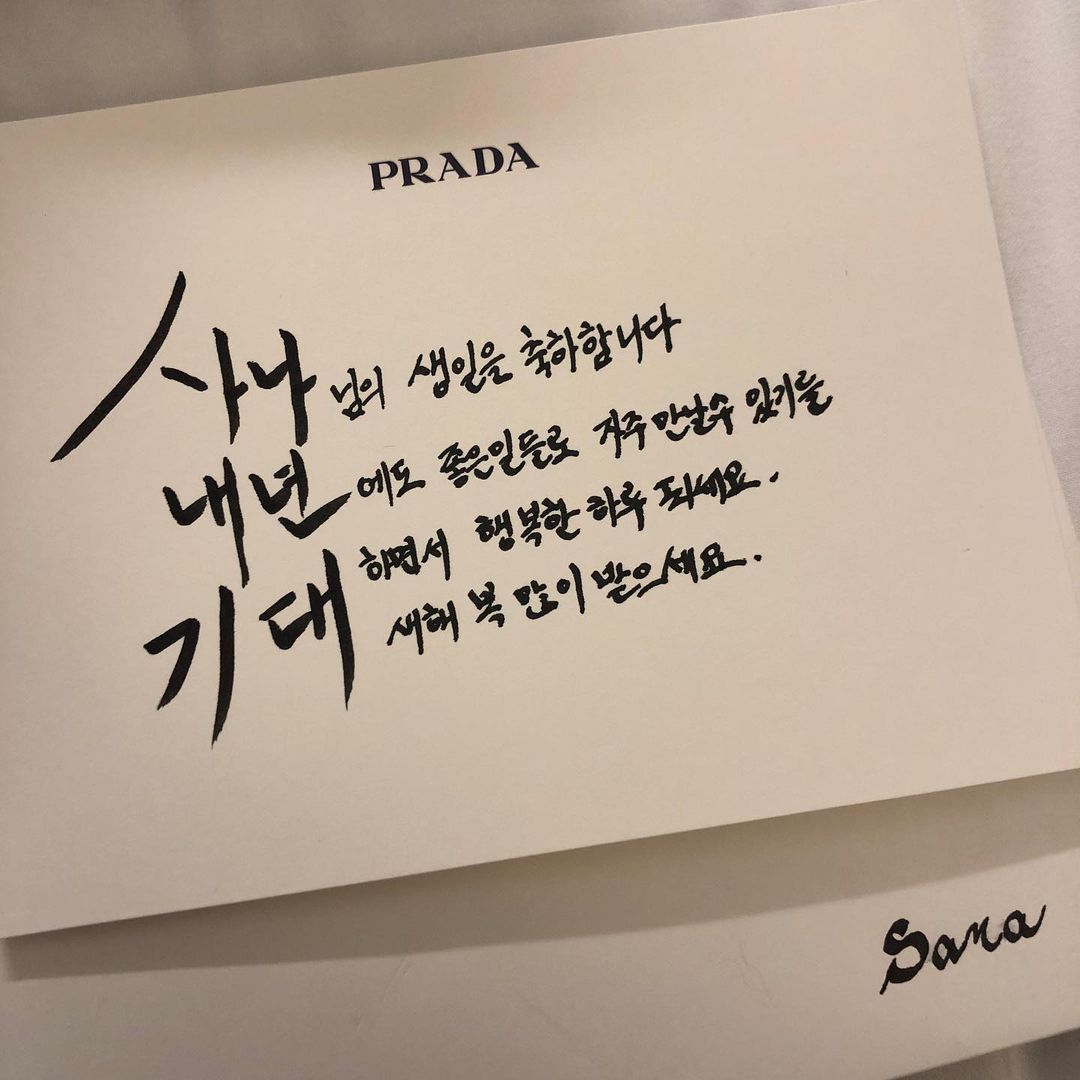 PRADA
사나님의 생일을 축하합니다
내년에도 좋은일들로 자주 만날수 있기를
기대하면서 행복한 하루 되세요.
새해 복 많이 받으세요.
Sana